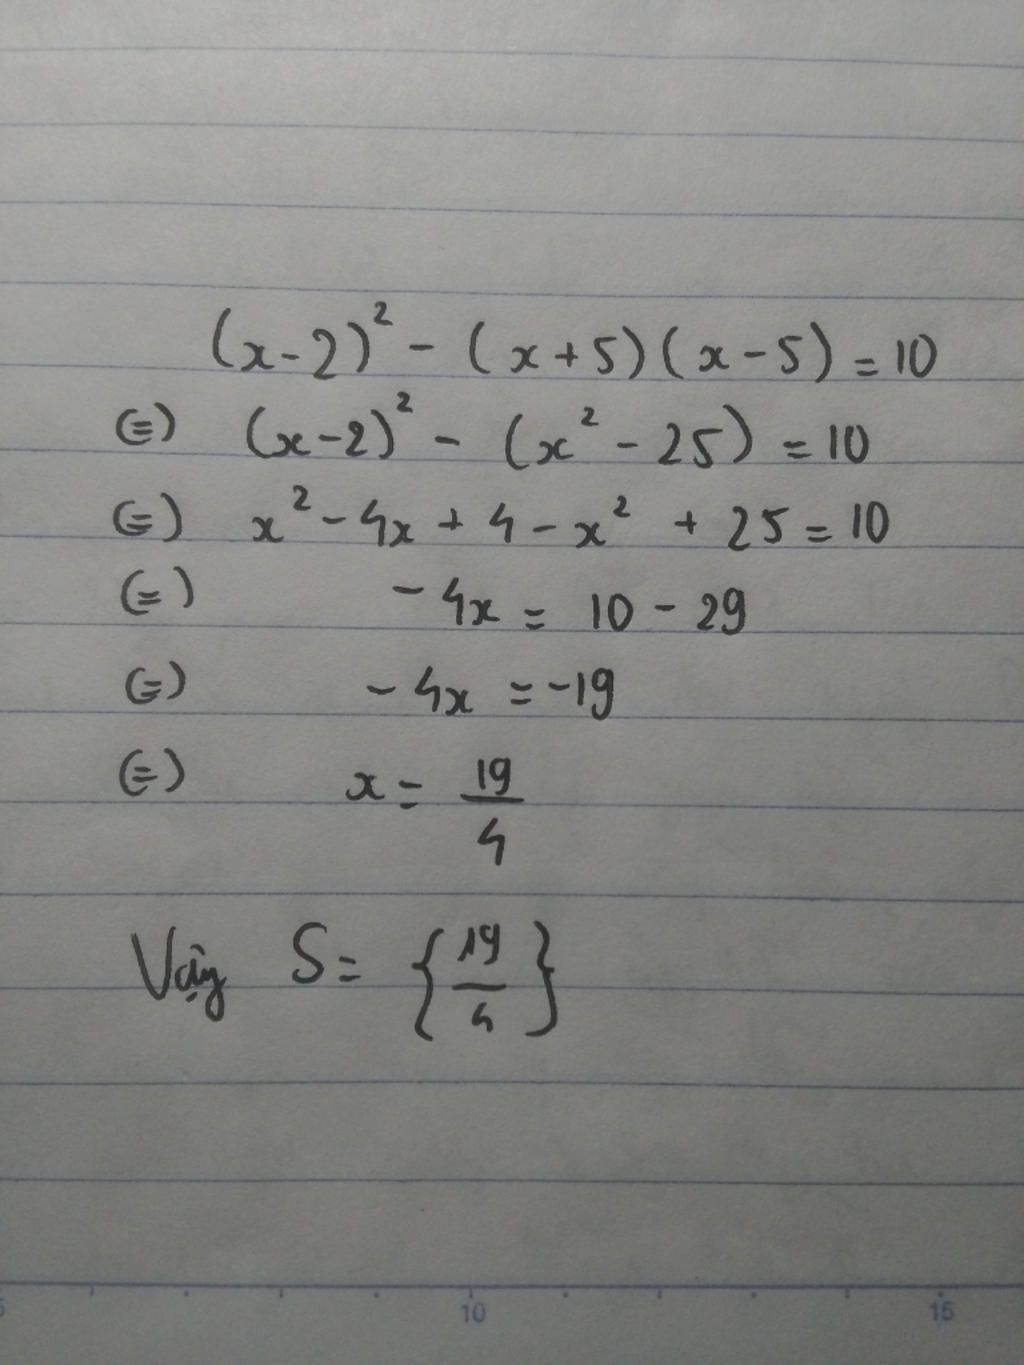 (x-2)² - (x+5)(x-5) = 10
(=) (x-2)² - (x² - 25) = 10
(=) x² - 4x + 4 - x² + 25 = 10
(=) - 4x = 10 - 29
(=) - 4x = -19
(=) x = 19/4
Vậy S = {19/4}
10 15